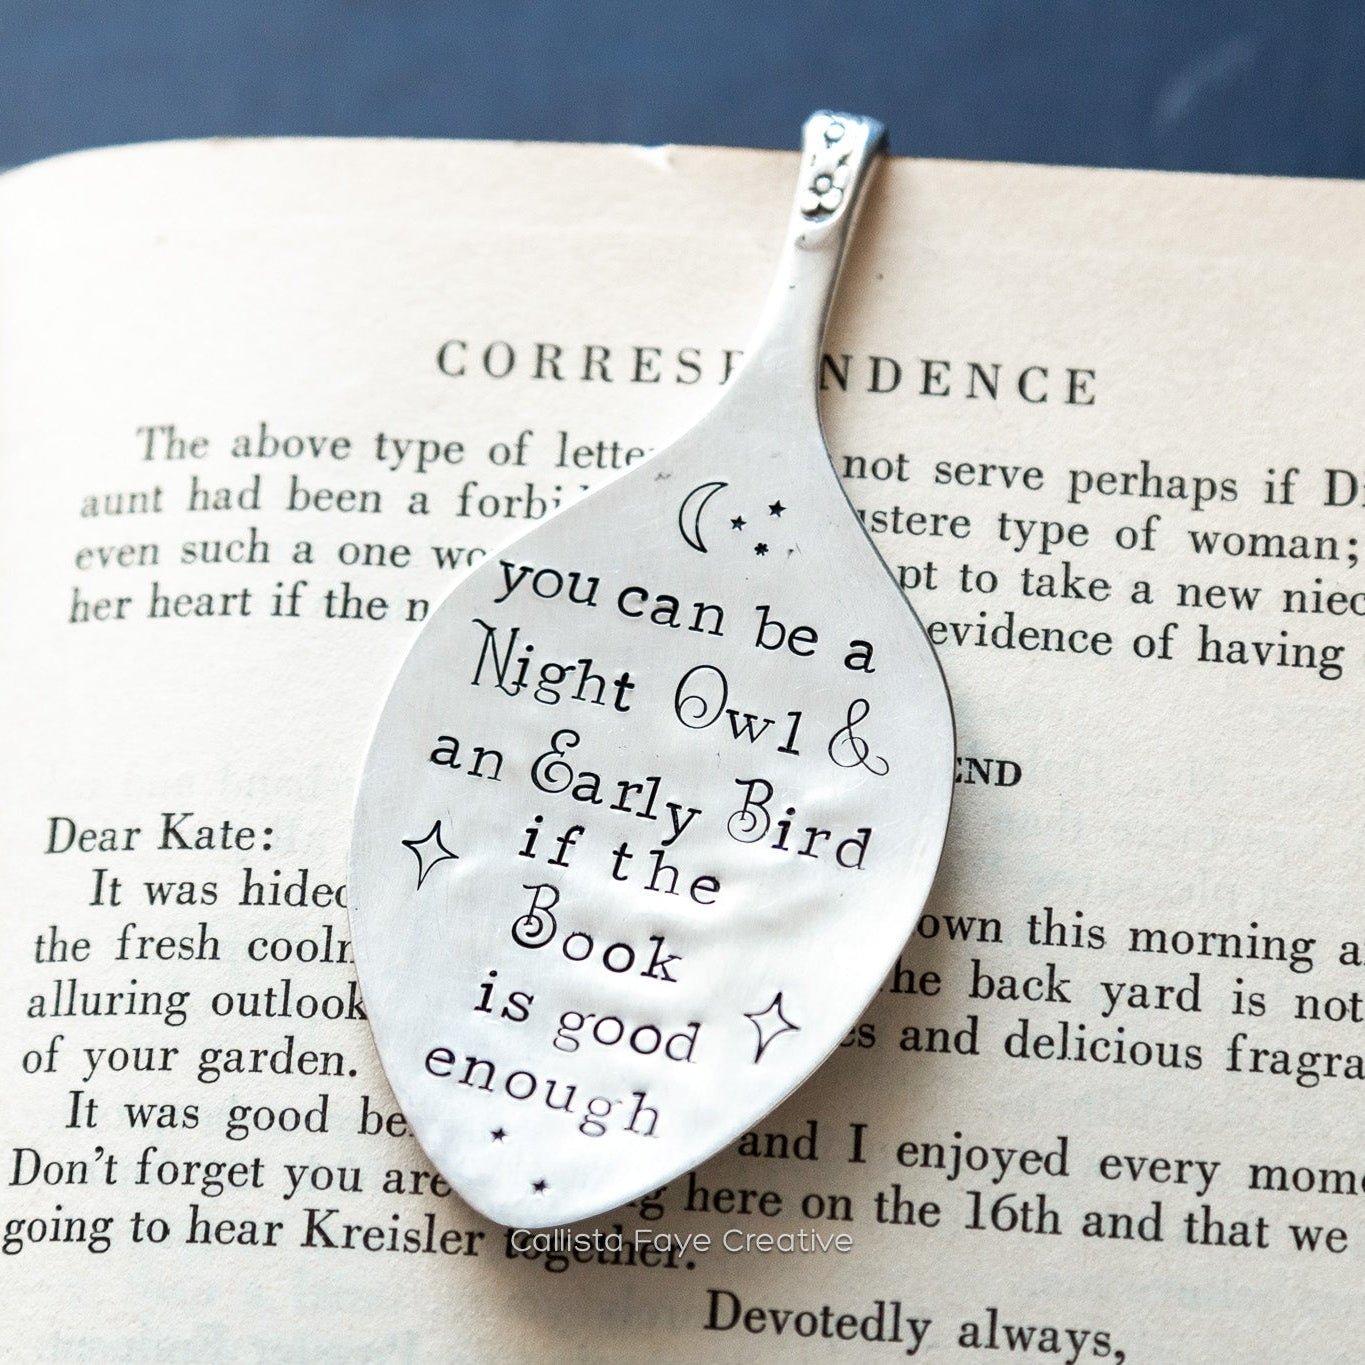 CORRES NDENCE
The above type of lette not serve perhaps if
aunt had been a forbi stere type of woman;
even such a one to take a new
her heart if the evidence of having
you can be a
Night Owl &
an Early Bird
if the
Book
is good
enough
END
Dear Kate:
It was own this morning
the fresh back yard is not
alluring outlook and delicious
of your garden.
It was good and I enjoyed every
Don't forget you are here on the 16th and that we
going to hear Kreisler together.
Callista Faye Creative
Devotedly always,